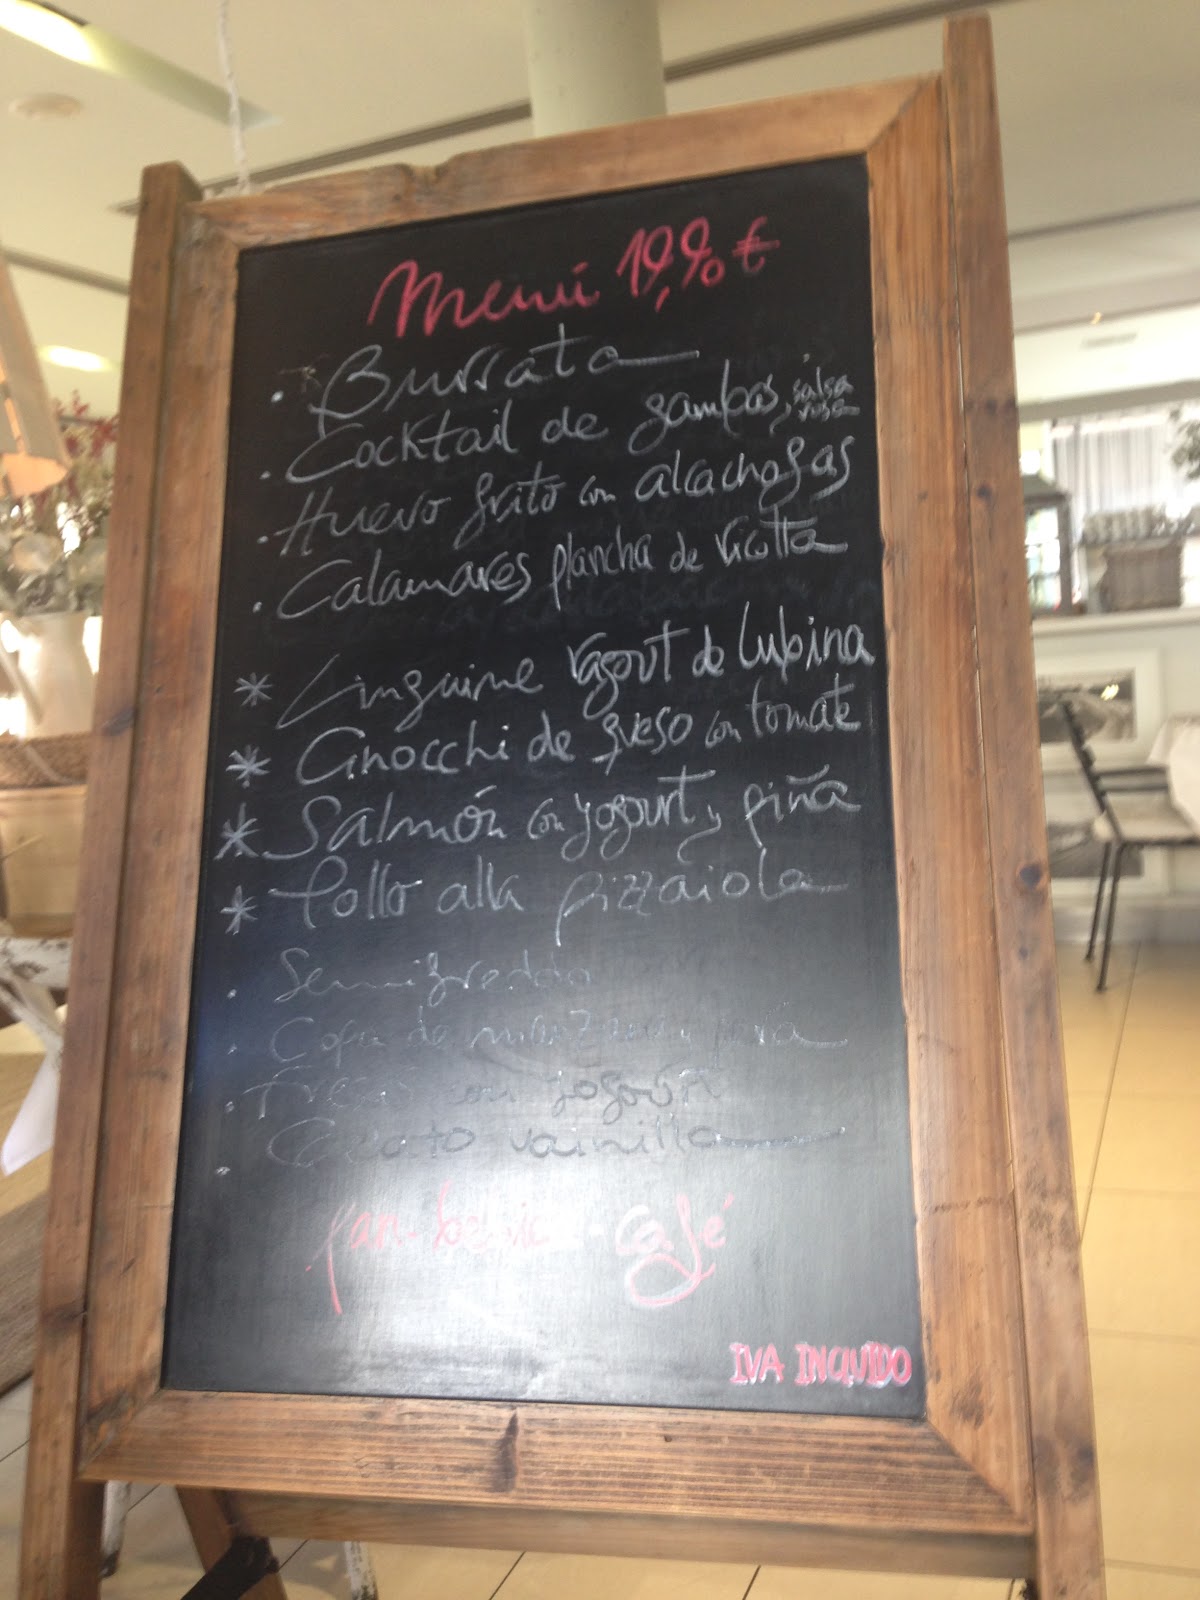 Menú 19,90 €
· Burrata
· Cocktail de gambas, salsa rosa
· Huevo frito con alcachofas
· Calamares plancha de ricotta
* Linguine ragout de lubina
* Gnocchi de queso con tomate
* Salmón con yogourt y piña
* Pollo alla pizzaiola
· Semifreddo
· Copa de manzana y pera
· Fresas con yogourt
· Gelato vainilla
Pan - bebida - Café
IVA INCLUIDO